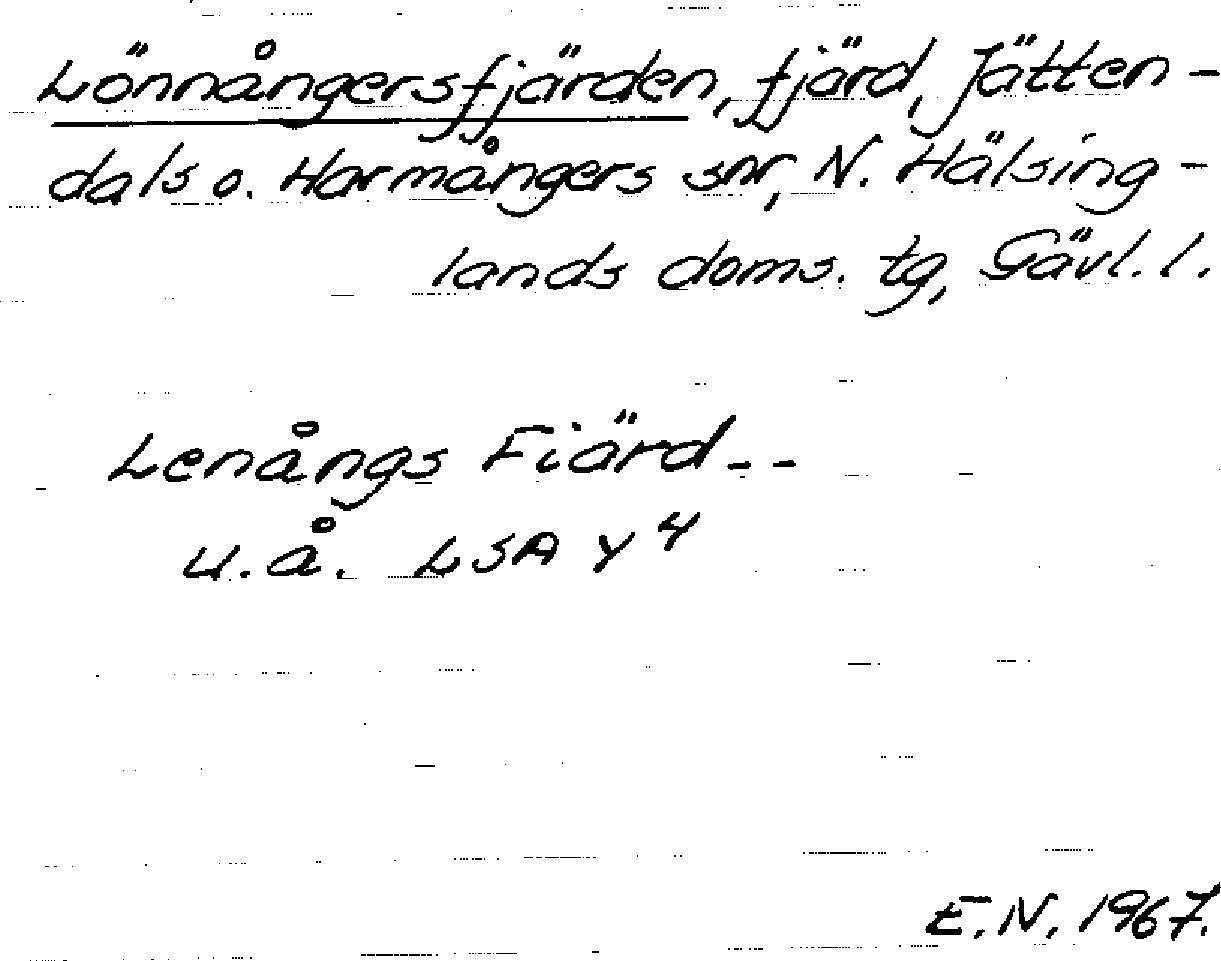 Lönnångersfjärden, fjärd, Jätten-
dals o. Harmångers snr, N. Hälsing-
lands doms. tg, Gävl. l.
Lenångs Fiärd--
u.å. LSA Y 4
E.N. 1967.